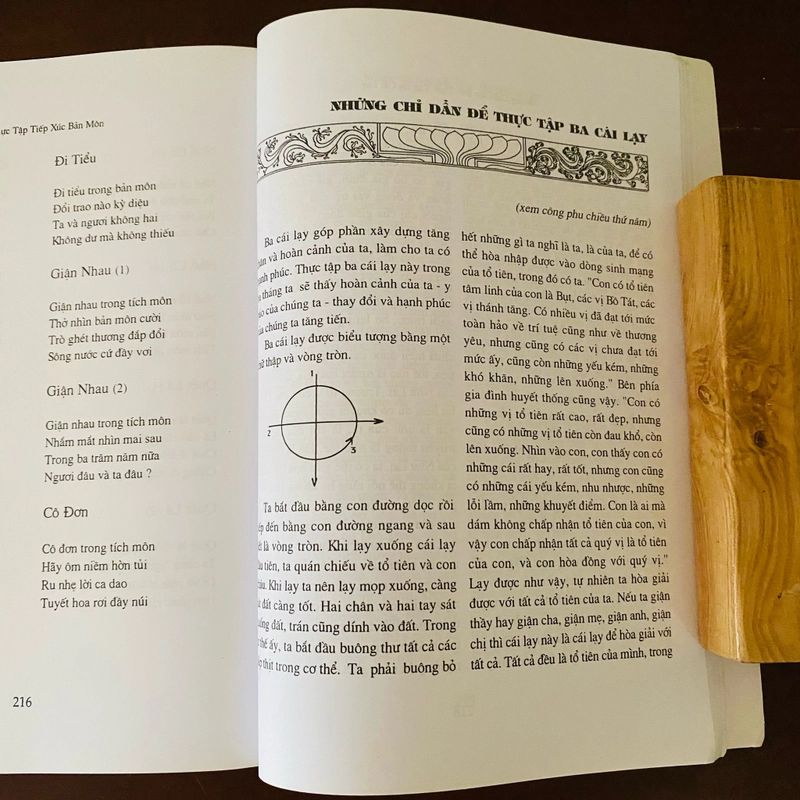 ực Tập Tiếp Xúc Bản Môn
Đi Tiểu
Đi tiểu trong bản môn
Đổi trao nào kỳ diệu
Ta và ngươi không hai
Không dư mà không thiếu
Giận Nhau (1)
Giận nhau trong tích môn
Thở nhìn bản môn cười
Trò ghét thương đắp đổi
Sông nước cứ đầy vơi
Giận Nhau (2)
Giận nhau trong tích môn
Nhắm mắt nhìn mai sau
Trong ba trăm năm nữa
Ngươi đâu và ta đâu ?
Cô Đơn
Cô đơn trong tích môn
Hãy ôm niềm hờn tủi
Ru nhẹ lời ca dao
Tuyết hoa rơi đầy núi
216
NHỮNG CHỈ DẪN ĐỂ THỰC TẬP BA CÁI LẠY
(xem công phu chiều thứ năm)
Ba cái lạy góp phần xây dựng tăng
thân và hoàn cảnh của ta, làm cho ta có
hạnh phúc. Thực tập ba cái lạy này trong
tháng ta sẽ thấy hoàn cảnh của ta - y
báo của chúng ta - thay đổi và hạnh phúc
của chúng ta tăng tiến.
Ba cái lạy được biểu tượng bằng một
chữ thập và vòng tròn.
1
2
3
Ta bắt đầu bằng con đường dọc rồi
tiếp đến bằng con đường ngang và sau
hết là vòng tròn. Khi lạy xuống cái lạy
đầu tiên, ta quán chiếu về tổ tiên và con
cháu. Khi lạy ta nên lạy mọp xuống, càng
sát đất càng tốt. Hai chân và hai tay sát
xuống đất, trán cũng dính vào đất. Trong
thế ấy, ta bắt đầu buông thư tất cả các
bắp thịt trong cơ thể. Ta phải buông bỏ
hết những gì ta nghĩ là ta, là của ta, để có
thể hòa nhập được vào dòng sinh mạng
của tổ tiên, trong đó có ta. "Con có tổ tiên
tâm linh của con là Bụt, các vị Bồ Tát, các
vị thánh tăng. Có nhiều vị đã đạt tới mức
toàn hảo về trí tuệ cũng như về thương
yêu, nhưng cũng có các vị chưa đạt tới
mức ấy, cũng còn những yếu kém, những
khó khăn, những lên xuống." Bên phía
gia đình huyết thống cũng vậy. "Con có
những vị tổ tiên rất cao, rất đẹp, nhưng
cũng có những vị tổ tiên còn đau khổ, còn
lên xuống. Nhìn vào con, con thấy con có
những cái rất hay, rất tốt, nhưng con cũng
có những cái yếu kém, nhu nhược, những
lỗi lầm, những khuyết điểm. Con là ai mà
dám không chấp nhận tổ tiên của con, vì
vậy con chấp nhận tất cả quý vị là tổ tiên
của con, và con hòa đồng với quý vị."
Lạy được như vậy, tự nhiên ta hòa giải
được với tất cả tổ tiên của ta. Nếu ta giận
thầy hay giận cha, giận mẹ, giận anh, giận
chị thì cái lạy này là cái lạy để hòa giải với
tất cả. Tất cả đều là tổ tiên của mình, trong